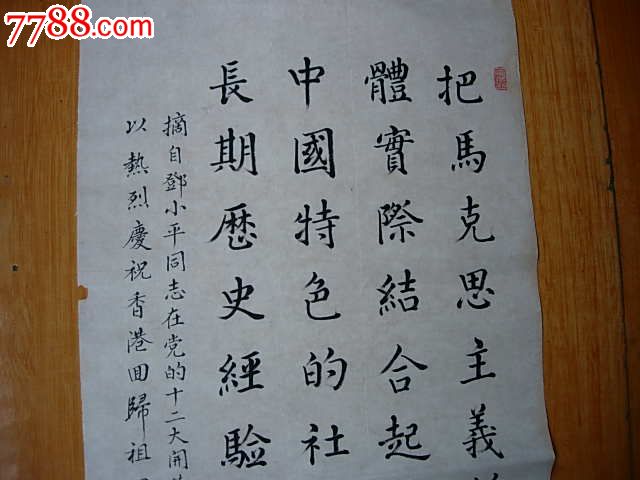 7788.com
把馬克思主義
體實際結合起
中國特色的社
長期歷史經驗
摘自鄧小平同志在党的十二大開
以熱烈慶祝香港回歸祖